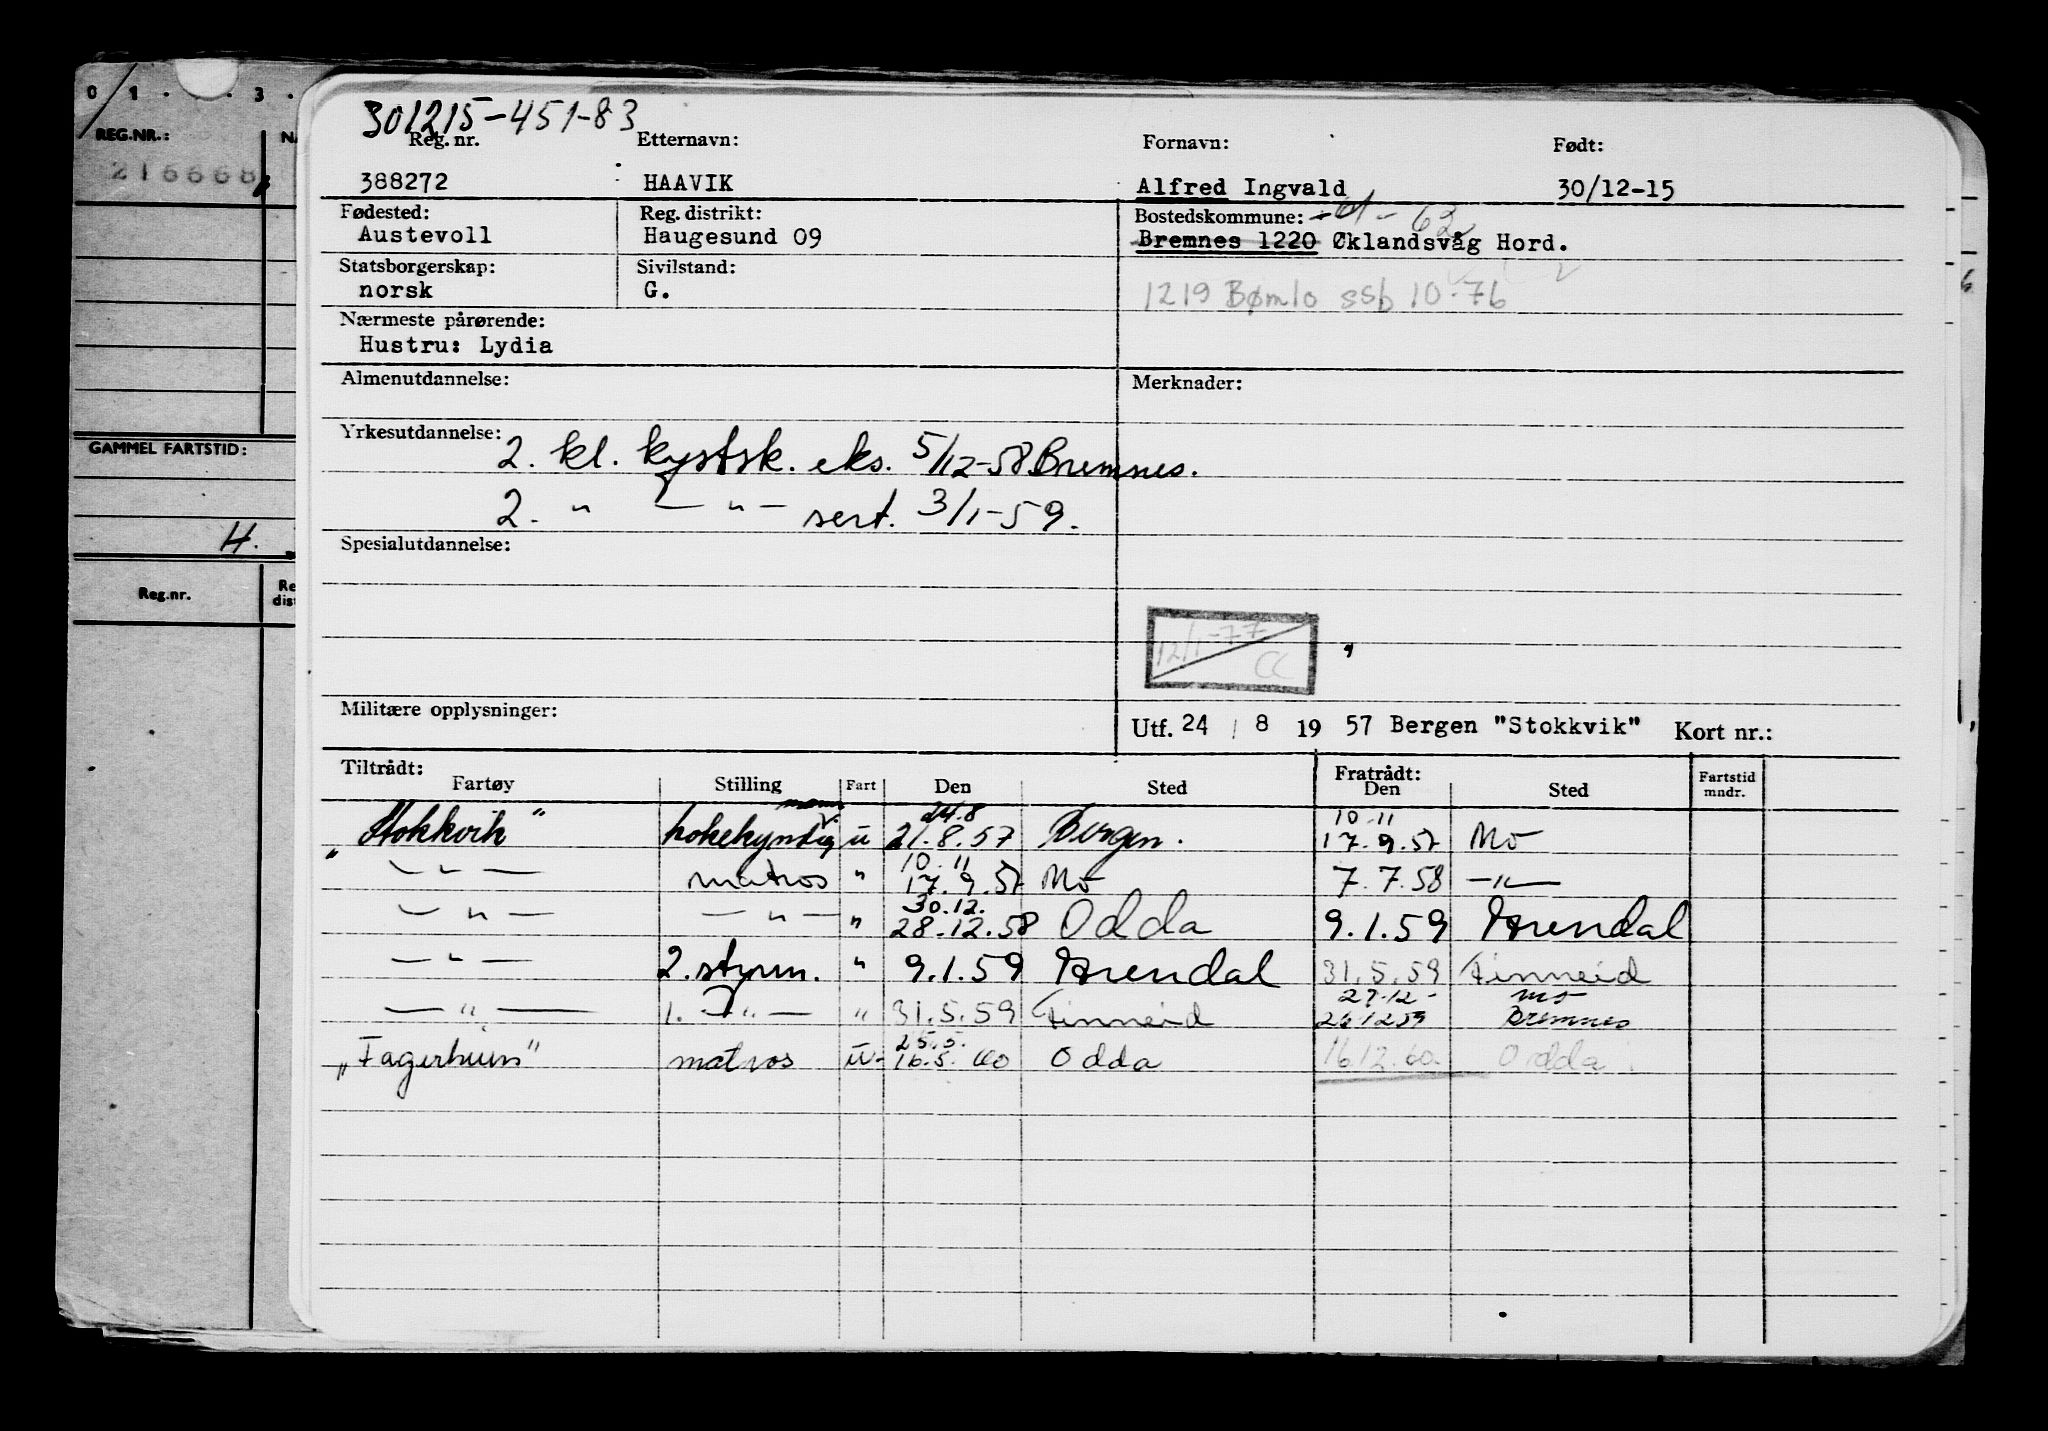 0 1 . . 3 .
REG.NR.:
216668
GAMMEL FARTSTID:
H.
Reg.nr.
301215-451-83
Reg. nr. Etternavn: Fornavn: Født:
388272 HAAVIK Alfred Ingvald 30/12-15
Fødested: Reg. distrikt: Bostedskommune: -61-62
Austevoll Haugesund 09 Bremnes 1220 Øklandsvåg Hord.
Statsborgerskap: Sivilstand:
norsk G. 1219 Bømlo ssb 10-76
Nærmeste pårørende:
Hustru: Lydia
Almenutdannelse: Merknader:
Yrkesutdannelse: 2. kl. kystsk. eks. 5/12-58 Bremnes.
2. " — " — sert. 3/1-59.
Spesialutdannelse:
12/1-77
CC
Militære opplysninger:
Utf. 24 / 8 19 57 Bergen "Stokkvik" Kort nr.:
Tiltrådt: Fratrådt: Fartstid
Fartøy Stilling Fart Den Sted Den Sted mndr.
mann 24.8 10.11
"Stokkvik" kokekyndig u 21.8.57 Bergen. 17.9.57 Mo
10.11
— " — matros " 17.9.57 Mo 7.7.58 — " —
30.12.
— " — — " — " 28.12.58 Odda 9.1.59 Arendal
— " — 2. styrm. " 9.1.59 Arendal 31.5.59 Finneid
27.12- Mo
— " — 1. — " — " 31.5.59 Finneid 26.12.59 Bremnes
25.5.
"Fagerhus" matros u- 16.5.60 Odda 16.12.60. Odda.